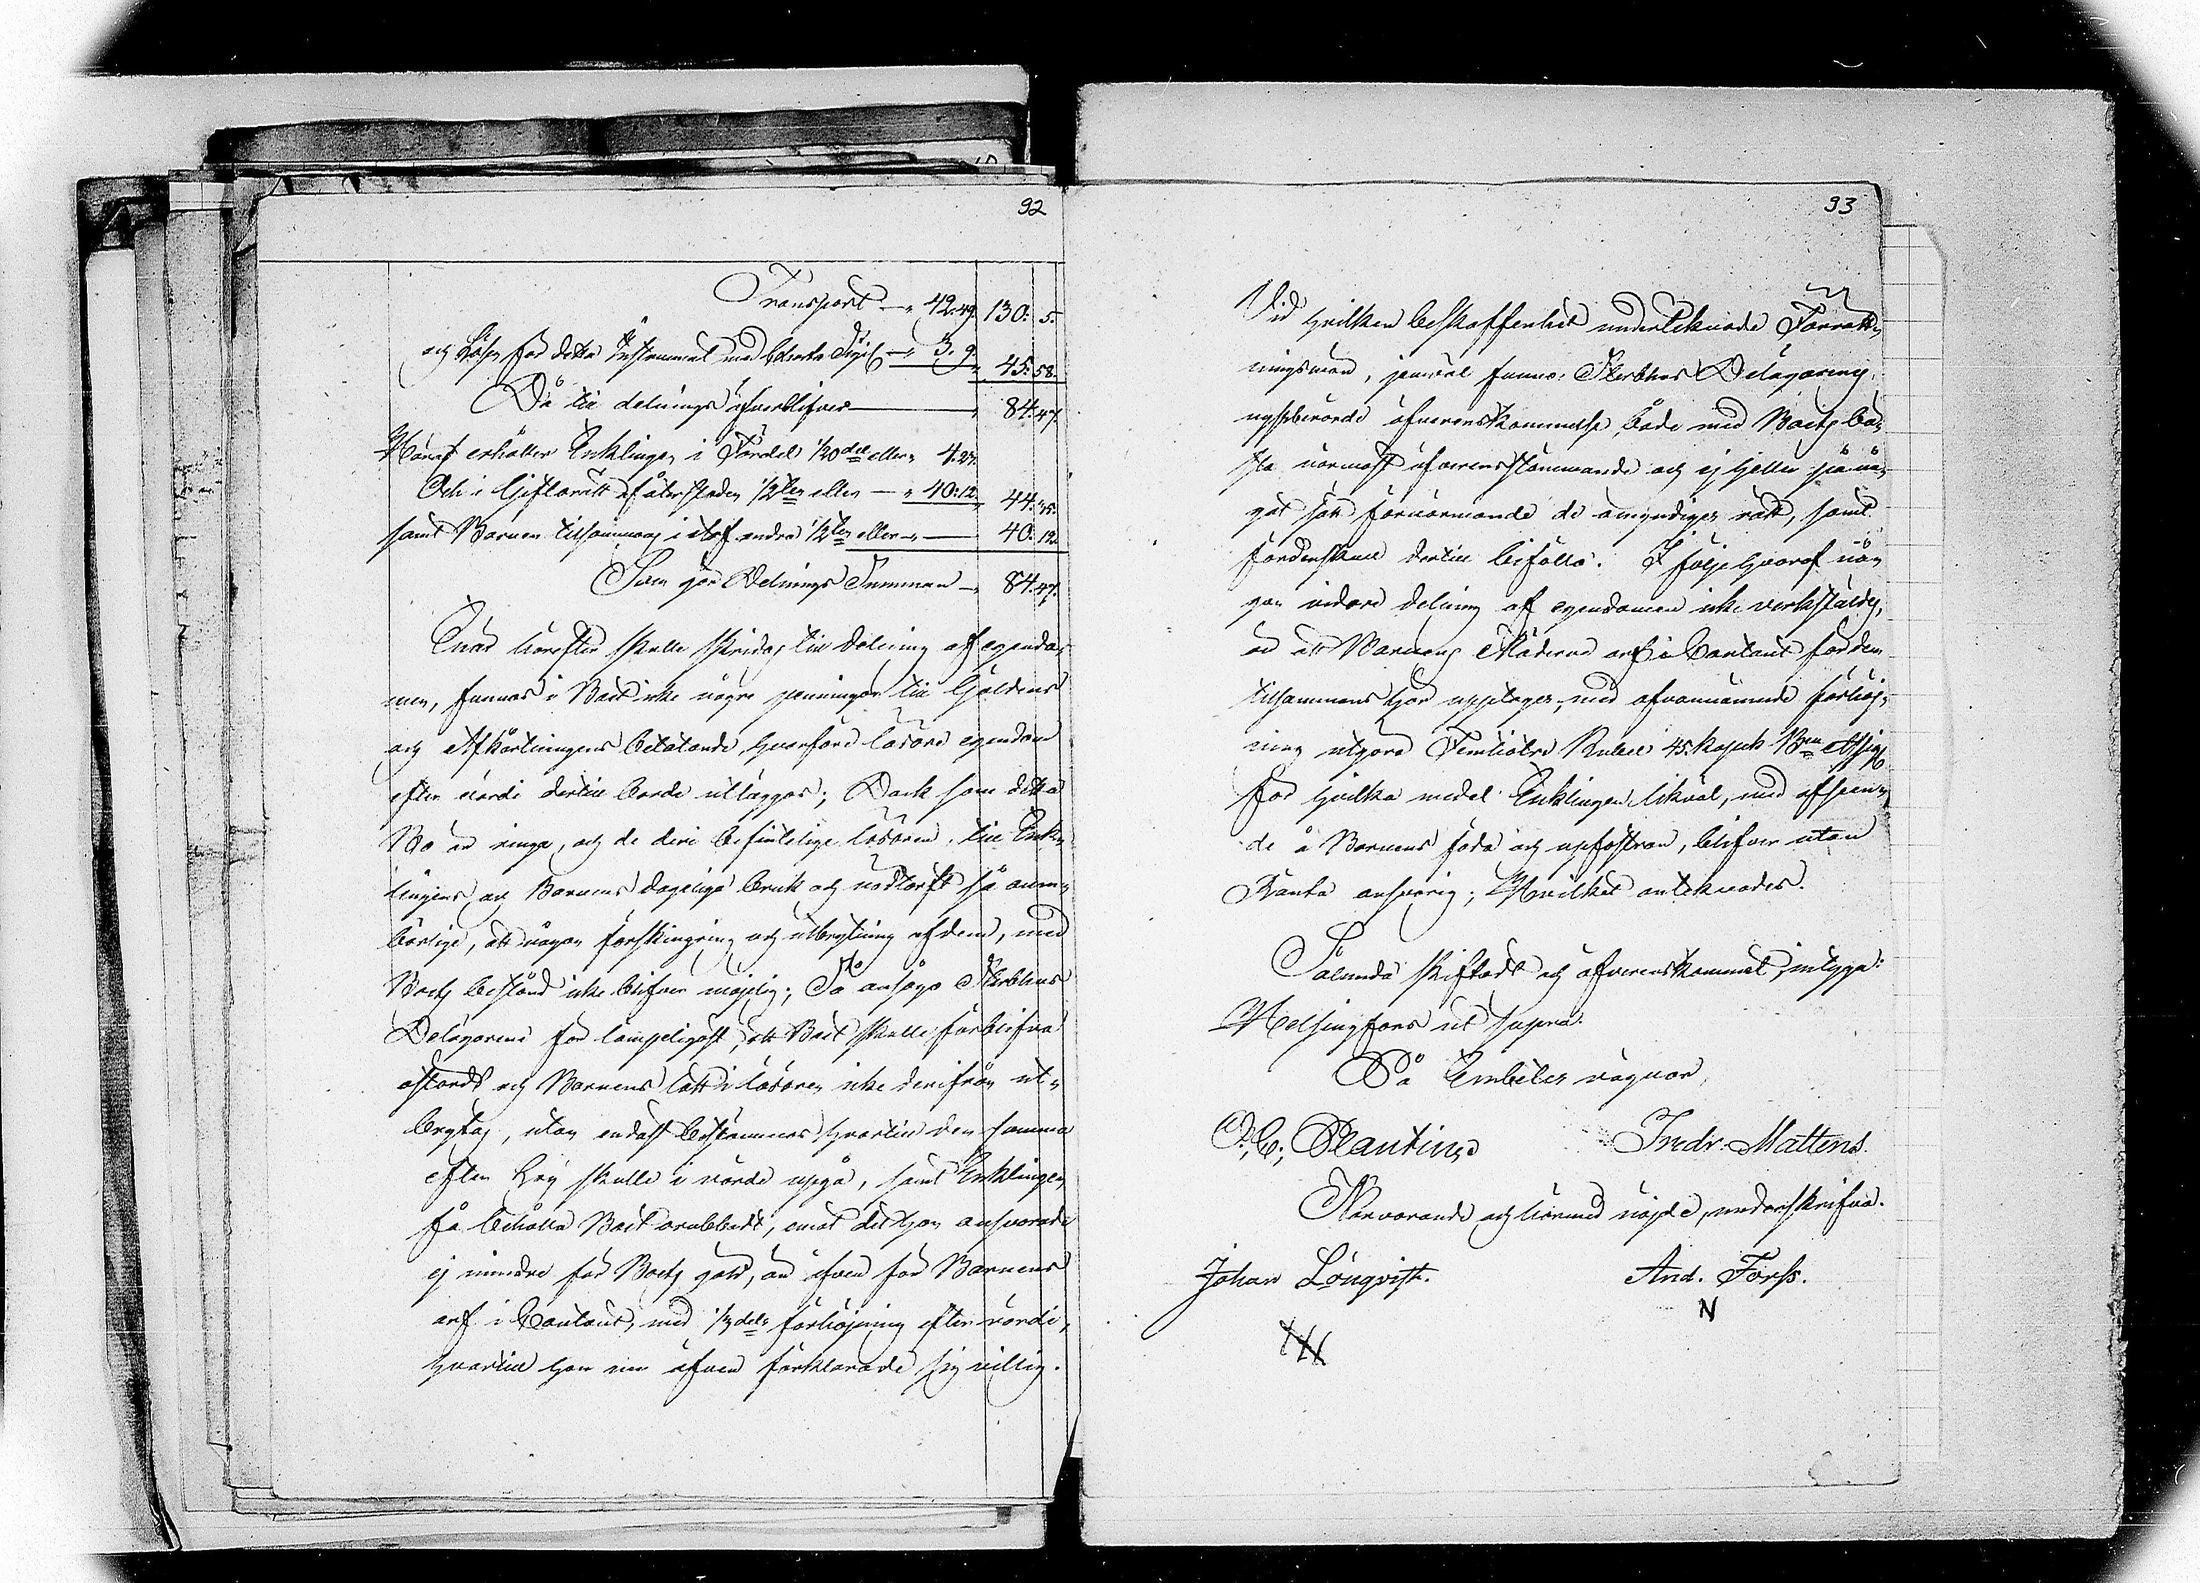 92
Transport — " 42. 49. 130. 5.
och Lösen för detta Instrument med Charta Sigil — " 3. 9. 45. 58.
Då till delnings öfverblifver — " 84. 47.
Häraf erhåller Enklingen i Fördel 1/20del eller " 4. 27.
Och i Giftorätt af återstoden 1/2ten eller — " 40. 12. 44. 35.
samt Barnen tillsammans i Arf andra 1/2ten eller — " 40. 12.
Som gör Delnings Summan — " 84. 47.
Enär härefter skulle skridas till delning af egendo-
men, funnos i Boet icke några penningar till Gäldens
och Afkortningens betalande, hvarföre lösöre egendom
efter värde dertill borde utläggas; Dock som detta
Bo är ringa, och de deri befintelige lösören, till Enk-
lingens och Barnens dageliga bruk och nödtorft så oum-
bärlige, att någon förskingring och utbrytning af dem, med
Boets bestånd icke blifver möjlig; Så ansågo Sterbhus
Delägarene för lämpeligast, att Boet skulle förblifva
oskördt och Barnens lott i lösören icke derifrån ut-
brytas, utan endast bestämmas hvartill den samma
efter Lag skulle i värde uppgå, samt Enklingen
få behålla Boet orubbadt, emot det han ansvarade
ej mindre för Boets gäld, än äfven för Barnens
arf i Contant, med 1/3dels förhöjning efter värde,
hvartill han nu äfven förklarade sig villig.
93
Vid hvilken beskaffenhet undertecknade Förrätt-
ningsmän, jemväl funno Sterbhus Delägarenes
uppberörde öfverenskommelse, både med Boets bä-
sta närmast öfverensstämmande och ej heller på nå-
got sätt förnärmande de omyndiges rätt, samt
fördenskull dertill biföllo. I följe hvaraf nå-
gon vidare delning af egendomen icke verkställdes,
än att Barnens Möderne arf i Contant för dem
tillsammans här upptages, med ofvannämnde förhöj-
ning utgöra Femtiotre Rubel 45. Kopek Bco Assigs
för hvilka medel Enklingen likväl, med afseen-
de å Barnens föda och uppfostran, blifver utan
Ränta ansvarig; Hvilket antecknades.
Sålunda skiftadt och öfverenskommet, intyga:
Helsingfors ut supra.
På Embetes vägnar,
O. C. Plantin. Indr. Mattens.
Närvarande och härmed nöjde, underskrifva.
Johan Lönqvist. And. Forss.
N